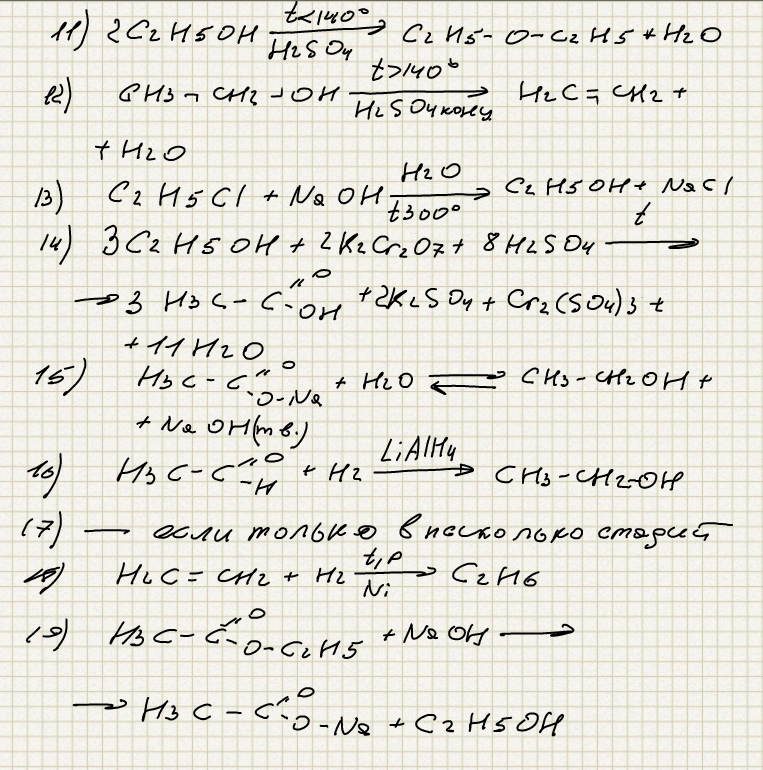 11) 2C2H5OH t<140° H2SO4 → C2H5-O-C2H5 + H2O
12) CH3-CH2-OH t>140° H2SO4 конц → H2C=CH2 +
+ H2O
13) C2H5Cl + NaOH H2O t300° → C2H5OH + NaCl
14) 3C2H5OH + 2K2Cr2O7 + 8H2SO4 t →
→ 3 H3C-C=O-OH + 2K2SO4 + Cr2(SO4)3 +
+ 11H2O
15) H3C-C=O O-Na + H2O ⇄ CH3-CH2OH +
+ NaOH(тв.)
16) H3C-C=O-H + H2 LiAlH4 → CH3-CH2-OH
17) — если только в несколько стадий
18) H2C=CH2 + H2 t,p Ni → C2H6
19) H3C-C=O O-C2H5 + NaOH →
→ H3C-C=O O-Na + C2H5OH